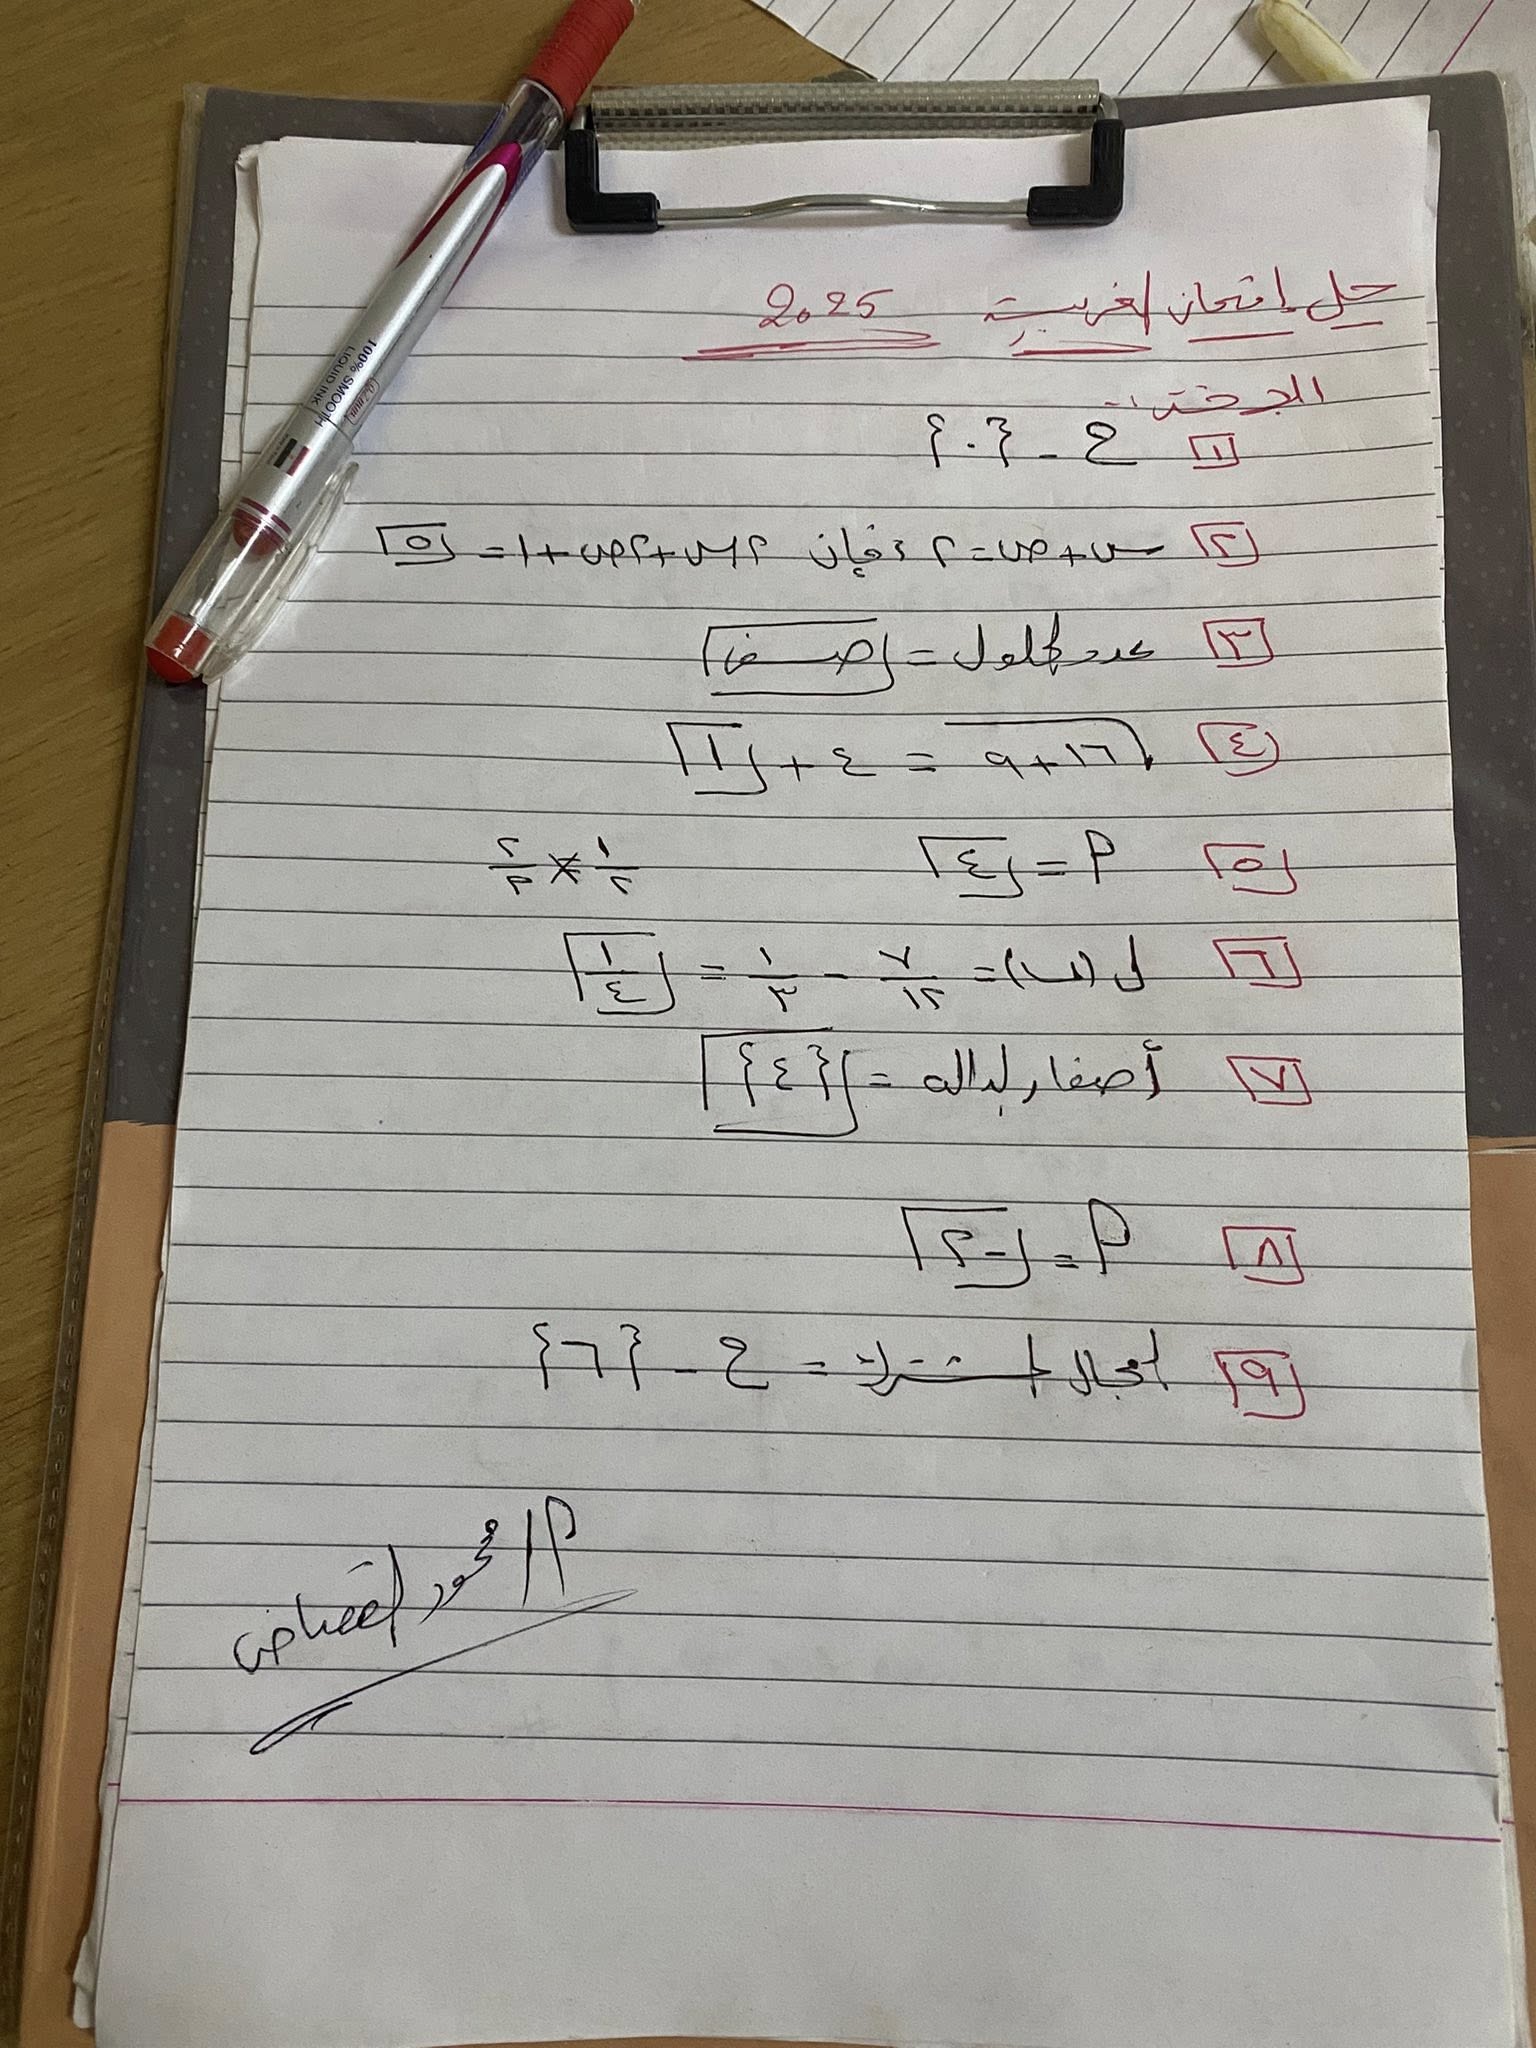 حل إمتحان الغربية 2025
الجبر
١ ح - {٠}
٢ س+ص=٢ فإن ٢س+٢ص+١=٥
٣ عدد الحلول = صفر
٤ √١٦+٩ = ٤+١
٥ ٩ = ٤ ١/٢ × ٢/٣
٦ ل(ب)= ٧/١٢ - ١/٣ = ١/٤
٧ أصفار الدالة = {٤}
٨ ٩ = -٢
٩ المجال المشترك = ح - {٦}
٩/ محمود القاضى
100% SMOOTH
LIQUID INK